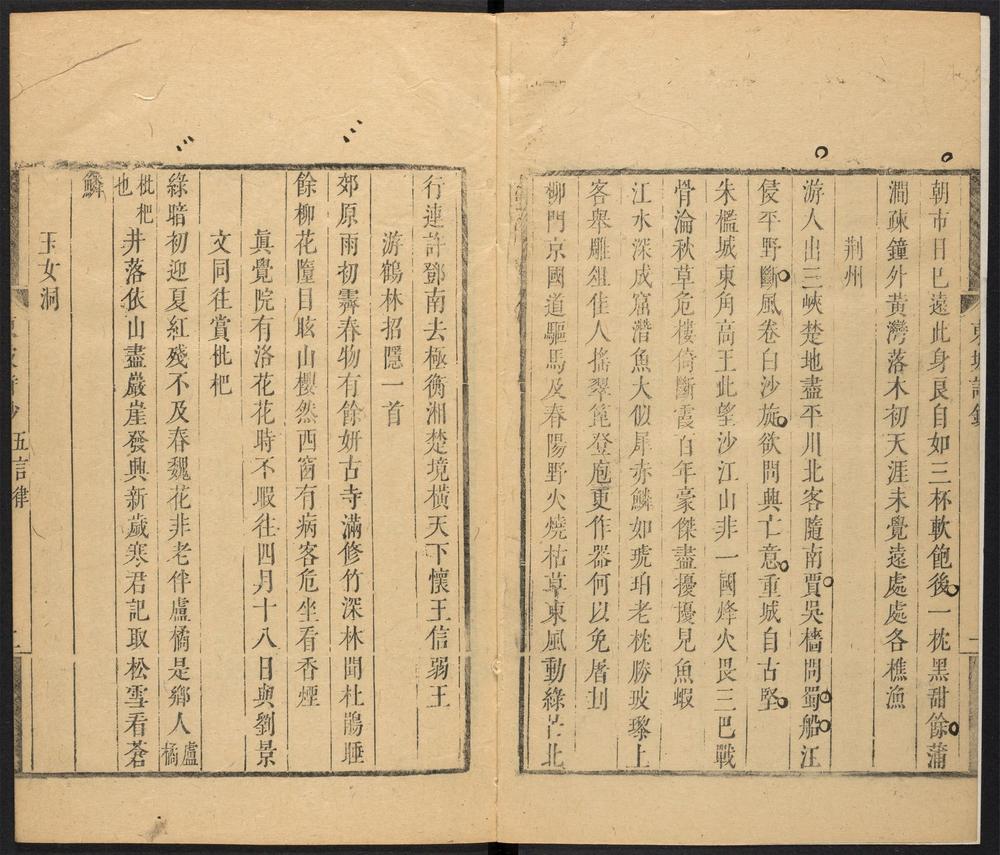 朝市日已遠此身良自如三杯軟飽後一枕黑甜餘蒲
澗疎鐘外黃灣落木初天涯未覺遠處處各樵漁
荆州
游人出三峽楚地盡平川北客隨南賈吳檣間蜀船江
侵平野斷風卷白沙旋欲問興亡意重城自古堅
朱檻城東角高王此望沙江山非一國烽火畏三巴戰
骨淪秋草危樓倚斷霞百年豪傑盡擾擾見魚蝦
江水深成窟潛魚大似犀赤鱗如琥珀老枕勝玻瓈上
客舉雕俎佳人搖翠篦登庖更作器何以免屠刲
柳門京國道驅馬及春陽野火燒枯草東風動綠芒北
行連許鄧南去極衡湘楚境橫天下懷王信弱王
游鶴林招隱一首
郊原雨初霽春物有餘妍古寺滿修竹深林聞杜鵑睡
餘柳花墮目眩山櫻然西窗有病客危坐看香煙
眞覺院有洛花花時不暇往四月十八日與劉景
文同往賞枇杷
綠暗初迎夏紅殘不及春魏花非老伴盧橘是鄉人盧橘
枇杷也井落依山盡巖崖發興新歲寒君記取松雪看蒼
鱗
玉女洞
五言律